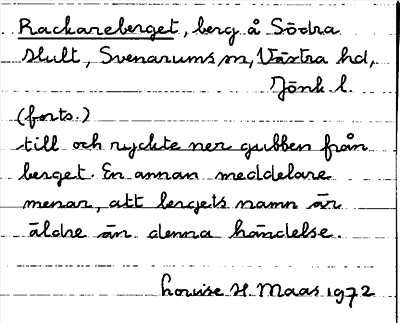 Rackareberget, berg å Södra
Hult, Svenarums sn, Västra hd,
Jönk. l.
(forts.)
till och ryckte ner gubben från
berget. En annan meddelare
menar, att bergets namn är
äldre än denna händelse.
Louise H. Maas 1972